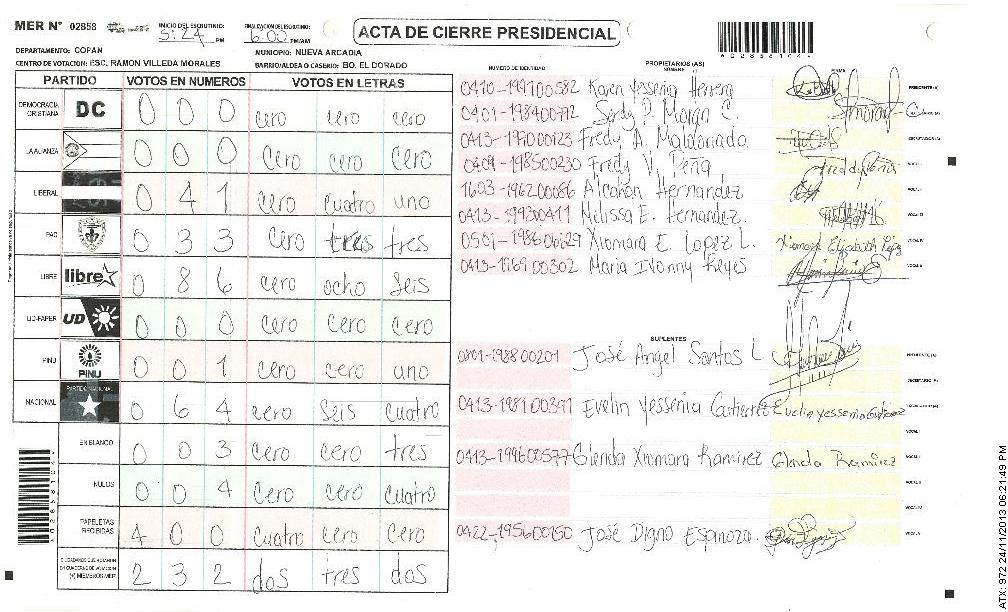 MER N° 02858 INICIO DEL ESCRUTINIO: 5:24 PM FINALIZACION DEL ESCRUTINIO: 6:00 PM/AM
ACTA DE CIERRE PRESIDENCIAL
DEPARTAMENTO: COPAN MUNICIPIO: NUEVA ARCADIA
CENTRO DE VOTACION: ESC. RAMON VILLEDA MORALES BARRIO/ALDEA O CASERIO: BO. EL DORADO
PARTIDO VOTOS EN NUMEROS VOTOS EN LETRAS
DEMOCRACIA CRISTIANA DC 0 0 0 cero cero cero
LA ALIANZA 0 0 0 cero cero cero
LIBERAL 0 4 1 cero cuatro uno
PAC 0 3 3 cero tres tres
LIBRE libre 0 8 6 cero ocho seis
UD-FAPER UD 0 0 0 cero cero cero
PINU PINU 0 0 1 cero cero uno
NACIONAL PARTIDO NACIONAL 0 6 4 cero seis cuatro
EN BLANCO 0 0 3 cero cero tres
NULOS 0 0 4 cero cero cuatro
PAPELETAS RECIBIDAS 4 0 0 cuatro cero cero
CIUDADANOS QUE VOTARON EN CUADERNO DE VOTACION (+) MIEMBROS MER 2 3 2 dos tres dos
NUMERO DE IDENTIDAD PROPIETARIOS (AS) NOMBRE FIRMA
0410-199100582 Karen Yessenia Herrera PRESIDENTE(A)
0401-198400792 Sendy P. Moran C.
Fredy A. Maldonado SECRETARIO(A)
0409-198500230 Fredy V. Peña Freddy Peña VOCAL I
1603-196200086 Hernandez
Melissa E. Hernandez.
Xiomara E. Lopez L. Xiomara Elizabeth López
0413-196900302 Maria Ivonny Reyes
SUPLENTES
José Angel Santos L PRESIDENTE(A)
SECRETARIO(A)
Evelin Yessenia Gutierrez Evelin yessenia Gutierrez
VOCAL I
0413-199600577 Glenda Xiomara Ramirez Glenda Ramirez
0422-195600150 José Digno Espinoza.
A02858104
ATX: 972 24/11/2013 06:21:49 PM